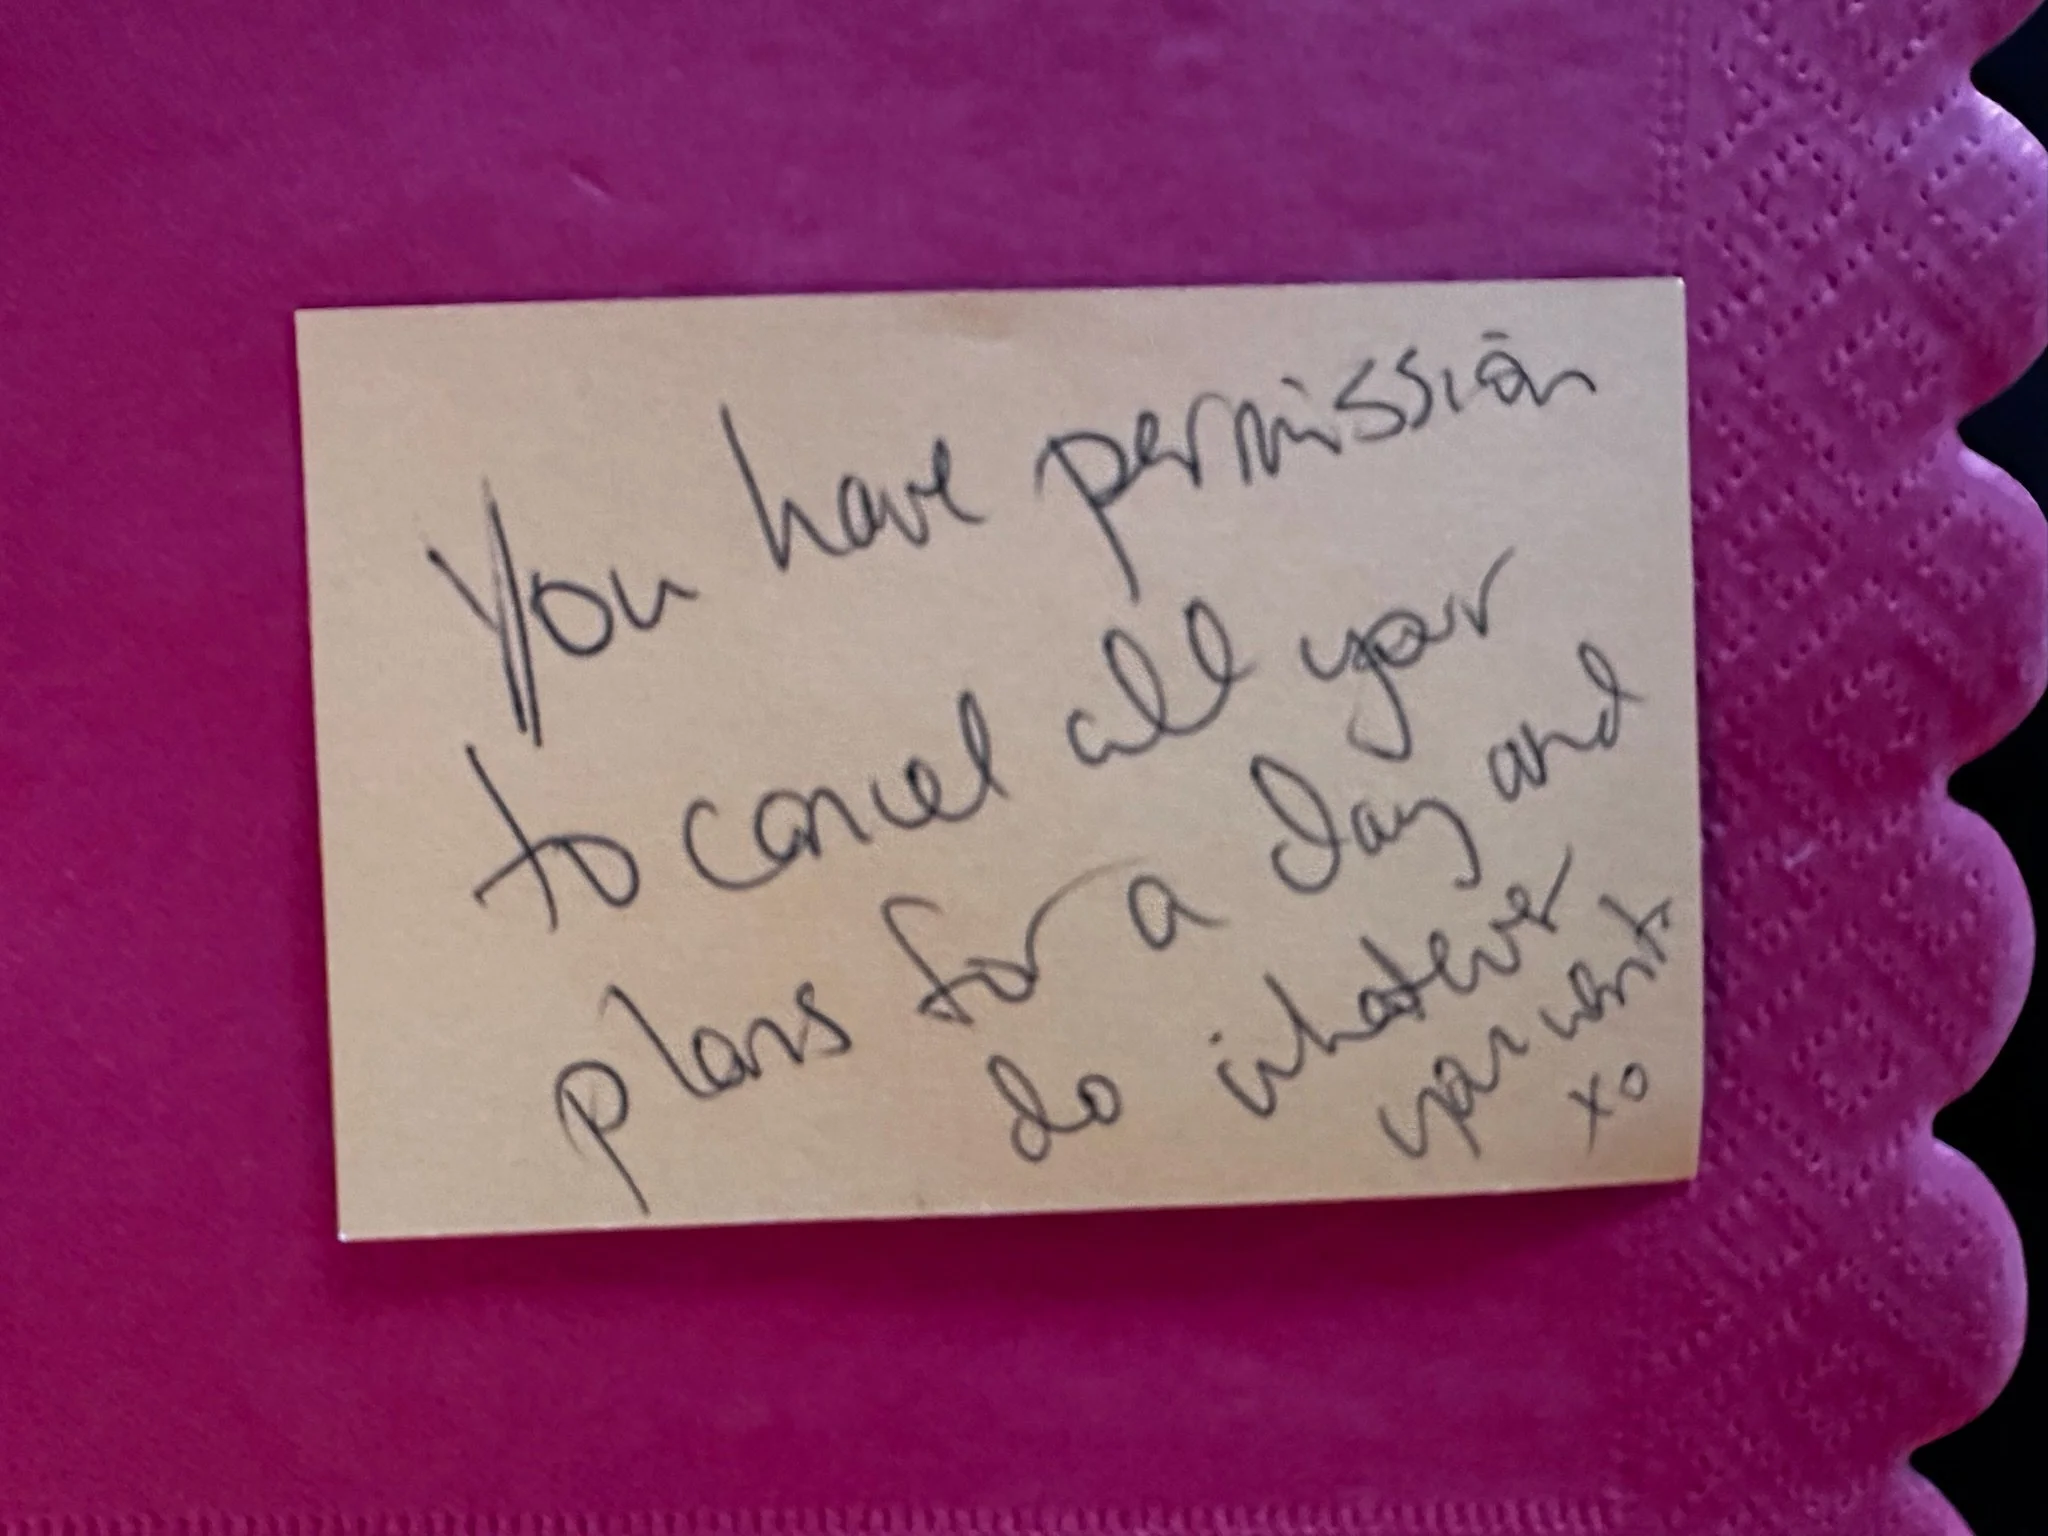 You have permission
to cancel all your
plans for a day and
do whatever
you want.
xo